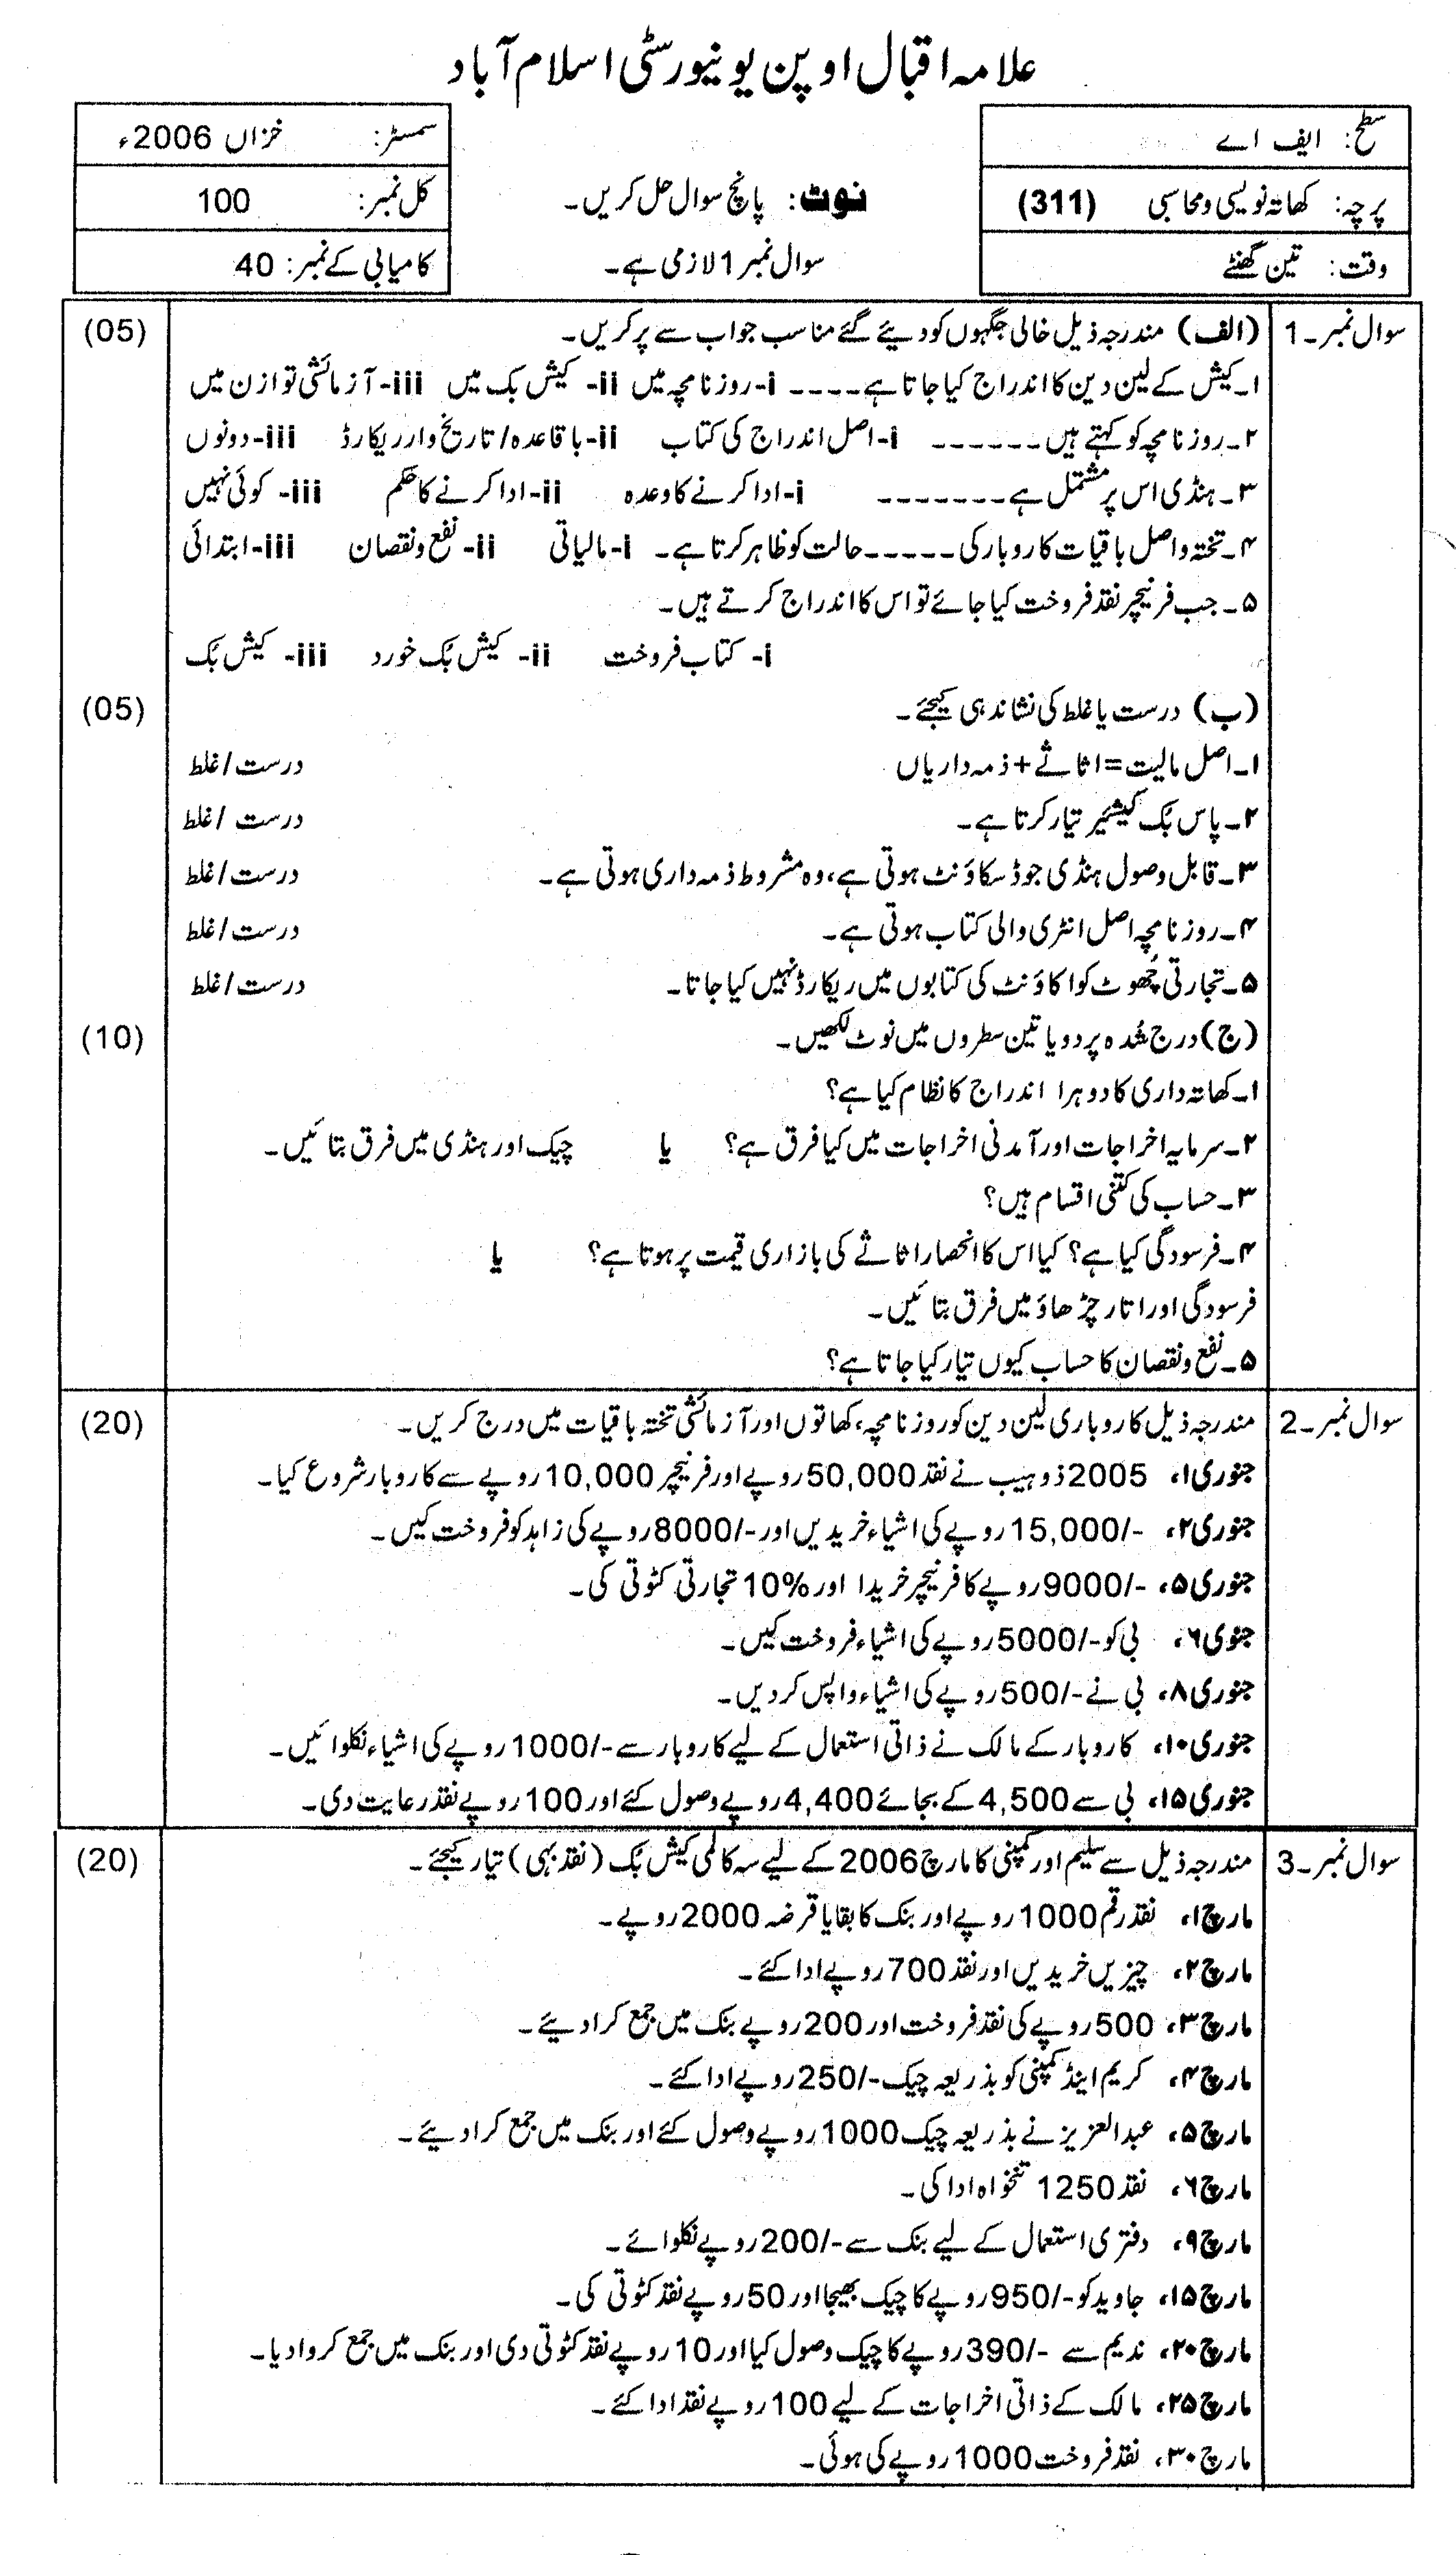 علامہ اقبال اوپن یونیورسٹی اسلام آباد
سطح: ایف اے
پرچہ: کھاتہ نویسی ومحاسبی (311)
وقت: تین گھنٹے
نوٹ: پانچ سوال حل کریں۔
سوال نمبر 1 لازمی ہے۔
سمسٹر: خزاں 2006ء
کل نمبر: 100
کامیابی کے نمبر: 40
سوال نمبر۔1 (الف) مندرجہ ذیل خالی جگہوں کو دیئے گئے مناسب جواب سے پر کریں۔ (05)
۱۔کیش کے لین دین کا اندراج کیا جاتا ہے۔۔۔۔ i-روزنامچہ میں ii- کیش بک میں iii-آزمائشی توازن میں
۲۔روزنامچہ کو کہتے ہیں۔۔۔۔۔۔ i-اصل اندراج کی کتاب ii-باقاعدہ/تاریخ وار ریکارڈ iii-دونوں
۳۔ہنڈی اس پر مشتمل ہے۔۔۔۔۔۔۔ i-ادا کرنے کا وعدہ ii-ادا کرنے کا حکم iii- کوئی نہیں
۴۔تختہ واصل باقیات کاروبار کی۔۔۔۔۔حالت کو ظاہر کرتا ہے۔ i-مالیاتی ii- نفع ونقصان iii-ابتدائی
۵۔جب فرنیچر نقد فروخت کیا جائے تو اس کا اندراج کرتے ہیں۔
i- کتاب فروخت ii- کیش بک خورد iii- کیش بک
(ب) درست یا غلط کی نشاندہی کیجئے۔ (05)
۱۔اصل مالیت=اثاثے+ذمہ داریاں درست/غلط
۲۔پاس بک کیشئیر تیار کرتا ہے۔ درست/غلط
۳۔قابل وصول ہنڈی جو ڈسکاؤنٹ ہوتی ہے،وہ مشروط ذمہ داری ہوتی ہے۔ درست/غلط
۴۔روزنامچہ اصل انٹری والی کتاب ہوتی ہے۔ درست/غلط
۵۔تجارتی چُھوٹ کو اکاؤنٹ کی کتابوں میں ریکارڈ نہیں کیا جاتا۔ درست/غلط
(ج) درج شُدہ پر دو یا تین سطروں میں نوٹ لکھیں۔ (10)
۱۔کھاتہ داری کا دوہرا اندراج کا نظام کیا ہے؟
۲۔سرمایہ اخراجات اور آمدنی اخراجات میں کیا فرق ہے؟ یا چیک اور ہنڈی میں فرق بتائیں۔
۳۔حساب کی کتنی اقسام ہیں؟
۴۔فرسودگی کیا ہے؟ کیا اس کا انحصار اثاثے کی بازاری قیمت پر ہوتا ہے؟ یا
فرسودگی اور اتار چڑھاؤ میں فرق بتائیں۔
۵۔نفع ونقصان کا حساب کیوں تیار کیا جاتا ہے؟
سوال نمبر۔2 مندرجہ ذیل کاروباری لین دین کو روزنامچہ،کھاتوں اور آزمائشی تختہ باقیات میں درج کریں۔ (20)
جنوری۱، 2005 ذوہیب نے نقد 50,000 روپے اور فرنیچر 10,000 روپے سے کاروبار شروع کیا۔
جنوری۲، 15,000/- روپے کی اشیاء خریدیں اور 8000/- روپے کی زاہد کو فروخت کیں۔
جنوری۵، 9000/- روپے کا فرنیچر خریدا اور 10% تجارتی کٹوتی کی۔
جنوی۶، بی کو 5000/- روپے کی اشیاء فروخت کیں۔
جنوری۸، بی نے 500/- روپے کی اشیاء واپس کردیں۔
جنوری۱۰، کاروبار کے مالک نے ذاتی استعمال کے لیے کاروبار سے 1000/- روپے کی اشیاء نکلوائیں۔
جنوری۱۵، بی سے 4,500 کے بجائے 4,400 روپے وصول کئے اور 100 روپے نقد رعایت دی۔
سوال نمبر۔3 مندرجہ ذیل سے سلیم اور کمپنی کا مارچ 2006 کے لیے سہ کالمی کیش بُک (نقد بہی) تیار کیجئے۔ (20)
مارچ۱، نقد رقم 1000 روپے اور بنک کا بقایا قرضہ 2000 روپے۔
مارچ۲، چیزیں خریدیں اور نقد 700 روپے ادا کئے۔
مارچ۳، 500 روپے کی نقد فروخت اور 200 روپے بنک میں جمع کرادیئے۔
مارچ۴، کریم اینڈ کمپنی کو بذریعہ چیک 250/- روپے ادا کئے۔
مارچ۵، عبدالعزیز نے بذریعہ چیک 1000 روپے وصول کئے اور بنک میں جمع کرادیئے۔
مارچ۶، نقد 1250 تنخواہ ادا کی۔
مارچ۹، دفتری استعمال کے لیے بنک سے 200/- روپے نکلوائے۔
مارچ۱۵، جاوید کو 950/- روپے کا چیک بھیجا اور 50 روپے نقد کٹوتی کی۔
مارچ۲۰، ندیم سے 390/- روپے کا چیک وصول کیا اور 10 روپے نقد کٹوتی دی اور بنک میں جمع کروادیا۔
مارچ۲۵، مالک کے ذاتی اخراجات کے لیے 100 روپے نقد ادا کئے۔
مارچ۳۰، نقد فروخت 1000 روپے کی ہوئی۔